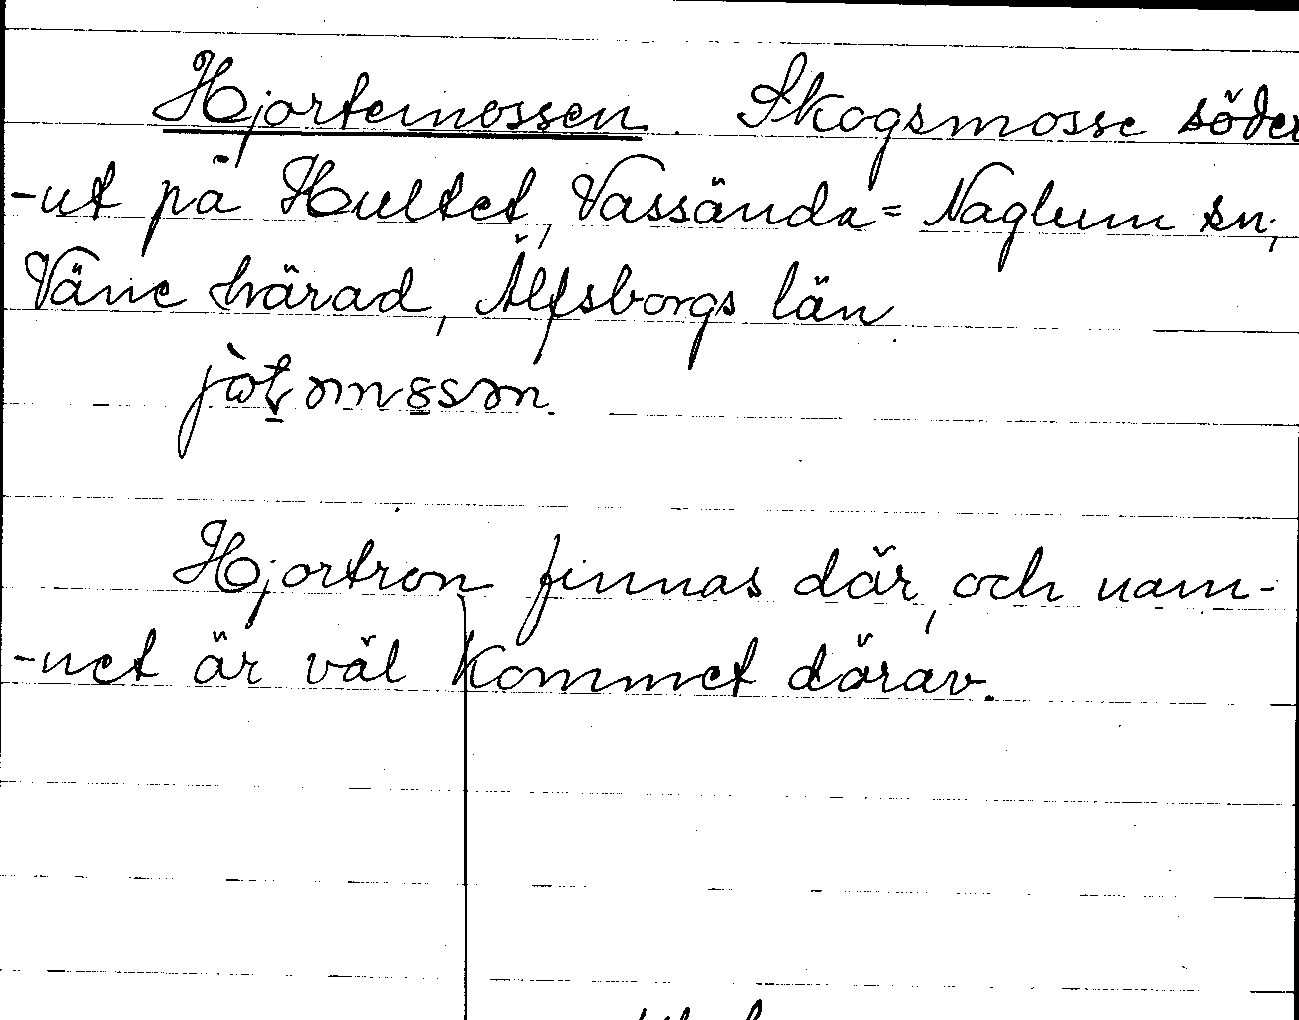 Hjortemossen. Skogsmosse söder
-ut på Hultet, Vassända=Naglum sn;
Väne härad, Älfsborgs län.
Hjortron finnas där, och nam-
-net är väl kommet därav.